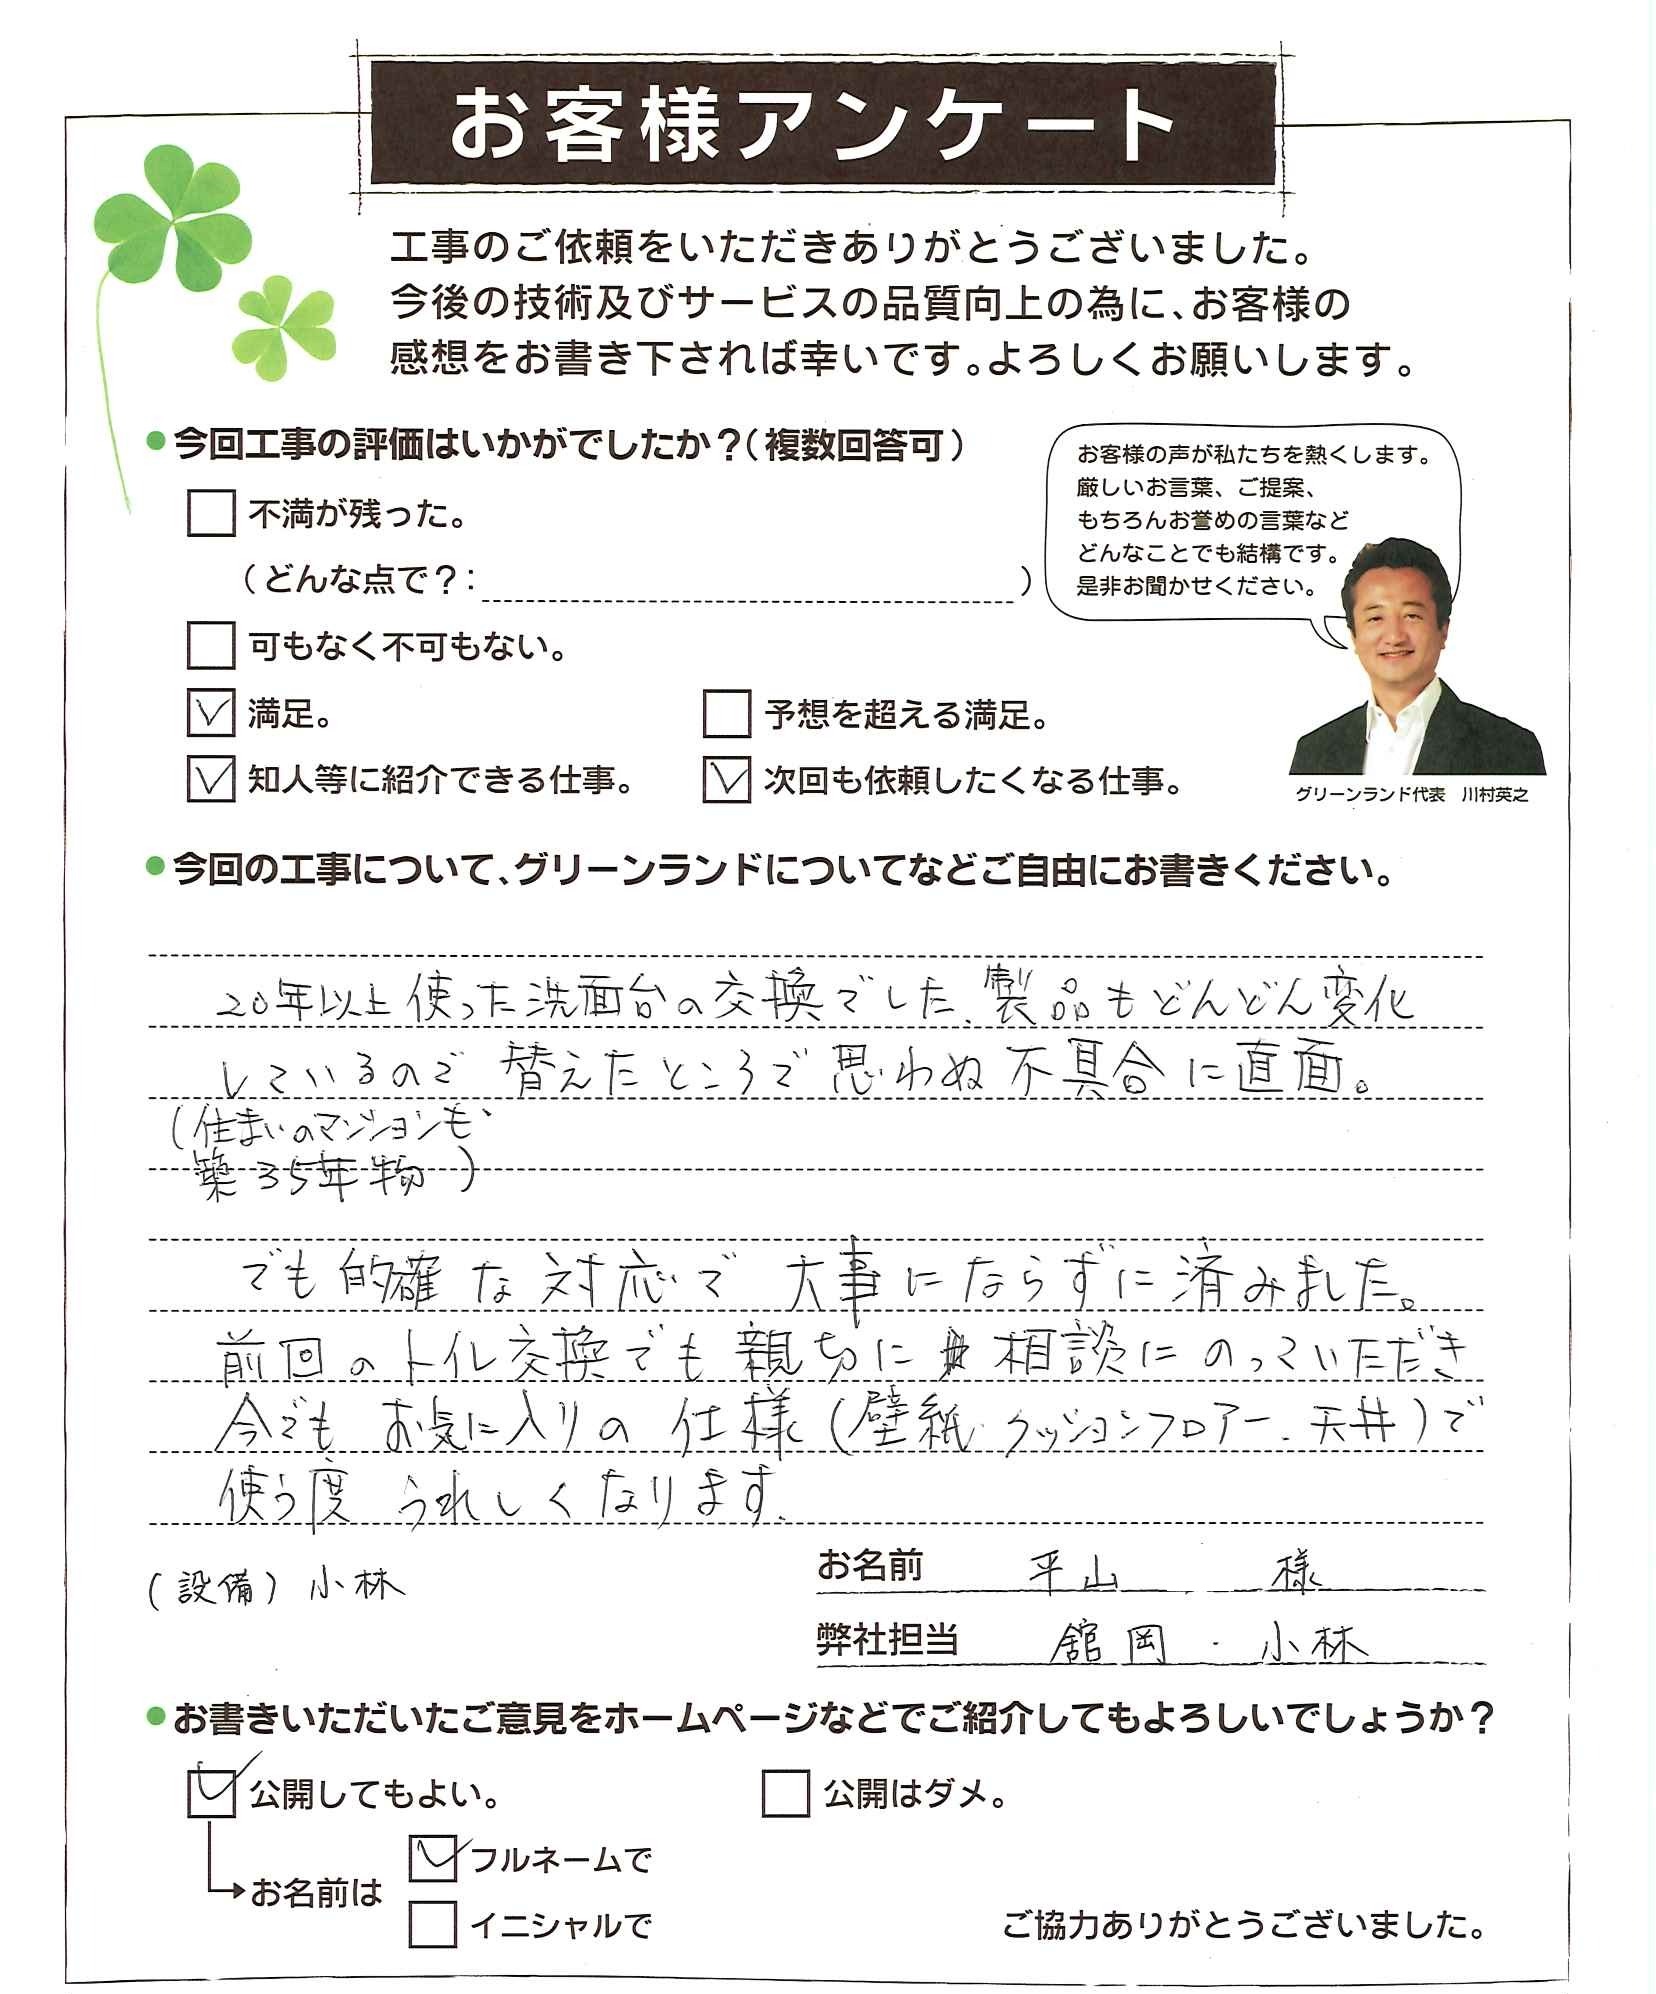 お客様アンケート
工事のご依頼をいただきありがとうございました。
今後の技術及びサービスの品質向上の為に、お客様の
感想をお書き下されば幸いです。よろしくお願いします。
●今回工事の評価はいかがでしたか？（複数回答可）
お客様の声が私たちを熱くします。
厳しいお言葉、ご提案、
もちろんお誉めの言葉など
どんなことでも結構です。
是非お聞かせください。
グリーンランド代表　川村英之
□ 不満が残った。
（どんな点で？：　）
□ 可もなく不可もない。
☑ 満足。　□ 予想を超える満足。
☑ 知人等に紹介できる仕事。　☑ 次回も依頼したくなる仕事。
●今回の工事について、グリーンランドについてなどご自由にお書きください。
20年以上使った洗面台の交換でした、製品もどんどん変化
しているので替えたところで思わぬ不具合に直面。
（住まいのマンションも、
築35年物）
でも的確な対応で大事にならずに済みました。
前回のトイレ交換でも親切に相談にのっていただき
今でもお気に入りの仕様（壁紙・クッションフロアー・天井）で
使う度うれしくなります。
（設備）小林
お名前　平山　様
弊社担当　舘岡・小林
●お書きいただいたご意見をホームページなどでご紹介してもよろしいでしょうか？
☑ 公開してもよい。　□ 公開はダメ。
→お名前は　☑ フルネームで
□ イニシャルで
ご協力ありがとうございました。